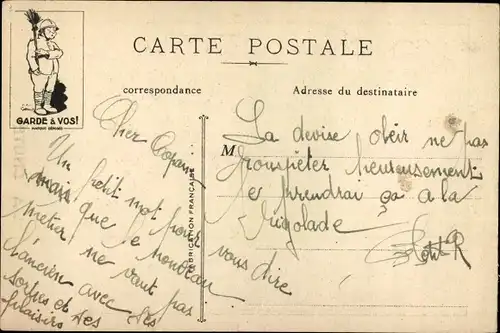 GARDE à VOS!
MARQUE DÉPOSÉE
CARTE POSTALE
correspondance
Adresse du destinataire
FABRICATION FRANÇAISE
Cher Copain
Un petit mot pour vous dire
que le nouveau
metier ne vaut pas
l'ancien avec ses
sorties et ses
plaisirs
M
La devise obéir ne pas
rouspéter heureusement
je prendrai ça à la
rigolade